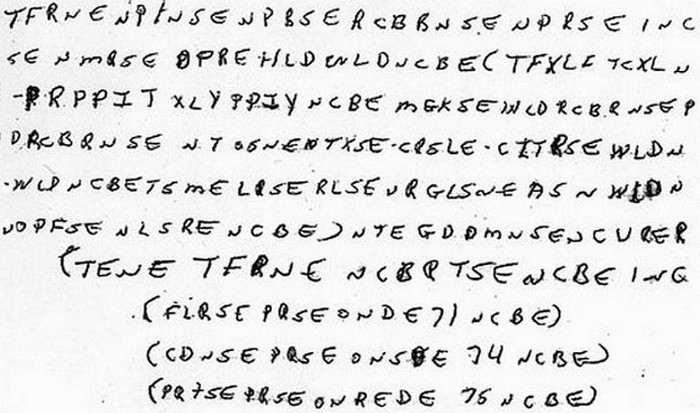 TFRNENPINSENPBSERCBBNSENPRSEINC
SENMRSEOPREHLDWLDNCBE(TFXLFTCXLN
-PRPPIT XLYPPIYNCBEMGKSEWLDRCBRNSEP
DRCBRNSENTOSNENTXSE-CRSLE-CITRSEWLDN
-WLDNCBETSMELRSERLSEURGLSNEASNWLDN
NOPFSENLSRENCBE)NTEGDDMNSENCURER
(TENETFRNENCBRTSENCBEING
(FLRSEPRSEONDE71NCBE)
(CDNSEPRSEONSDE74NCBE)
(PR7SEPRSEONREDE75NCBE)